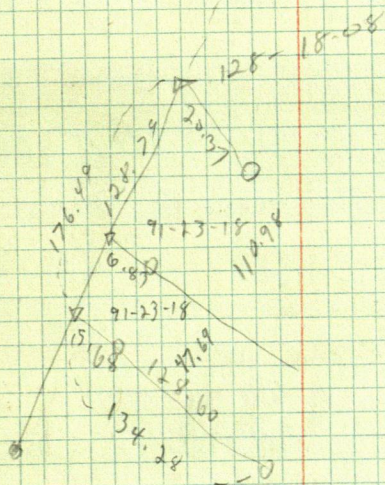 128-18-08
20.37
128.79
176.49
91-23-18
110.98
6.83
91-23-18
47.69
15.68
128.60
134.28